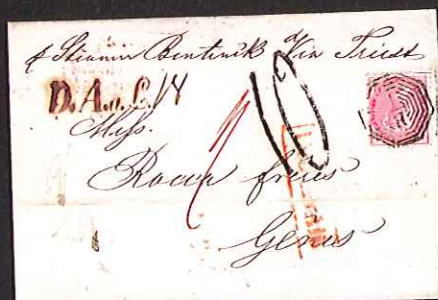 p Steamer Bentinck Via Triest
D.A.
Mess.
Rocca frères
Genes